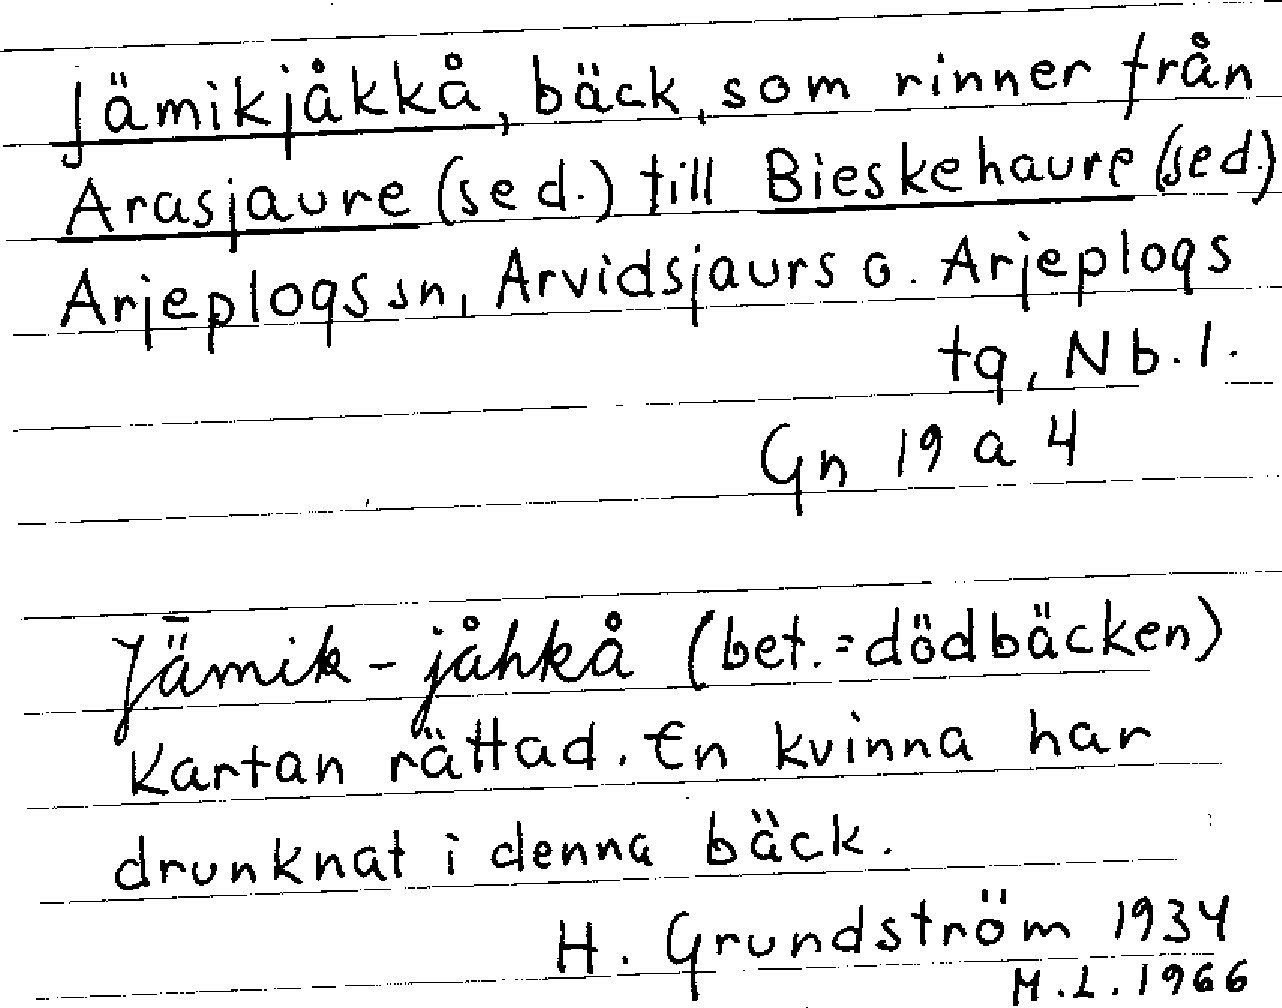 Jämikjåkkå, bäck, som rinner från
Arasjaure (sed.) till Bieskehaure (sed.)
Arjeplogs sn, Arvidsjaurs o. Arjeplogs
tg, Nb.l.
Gn 19 a 4
Jämik-jåhkå (bet.=dödbäcken)
Kartan rättad. En kvinna har
drunknat i denna bäck.
H. Grundström 1934
M.L. 1966